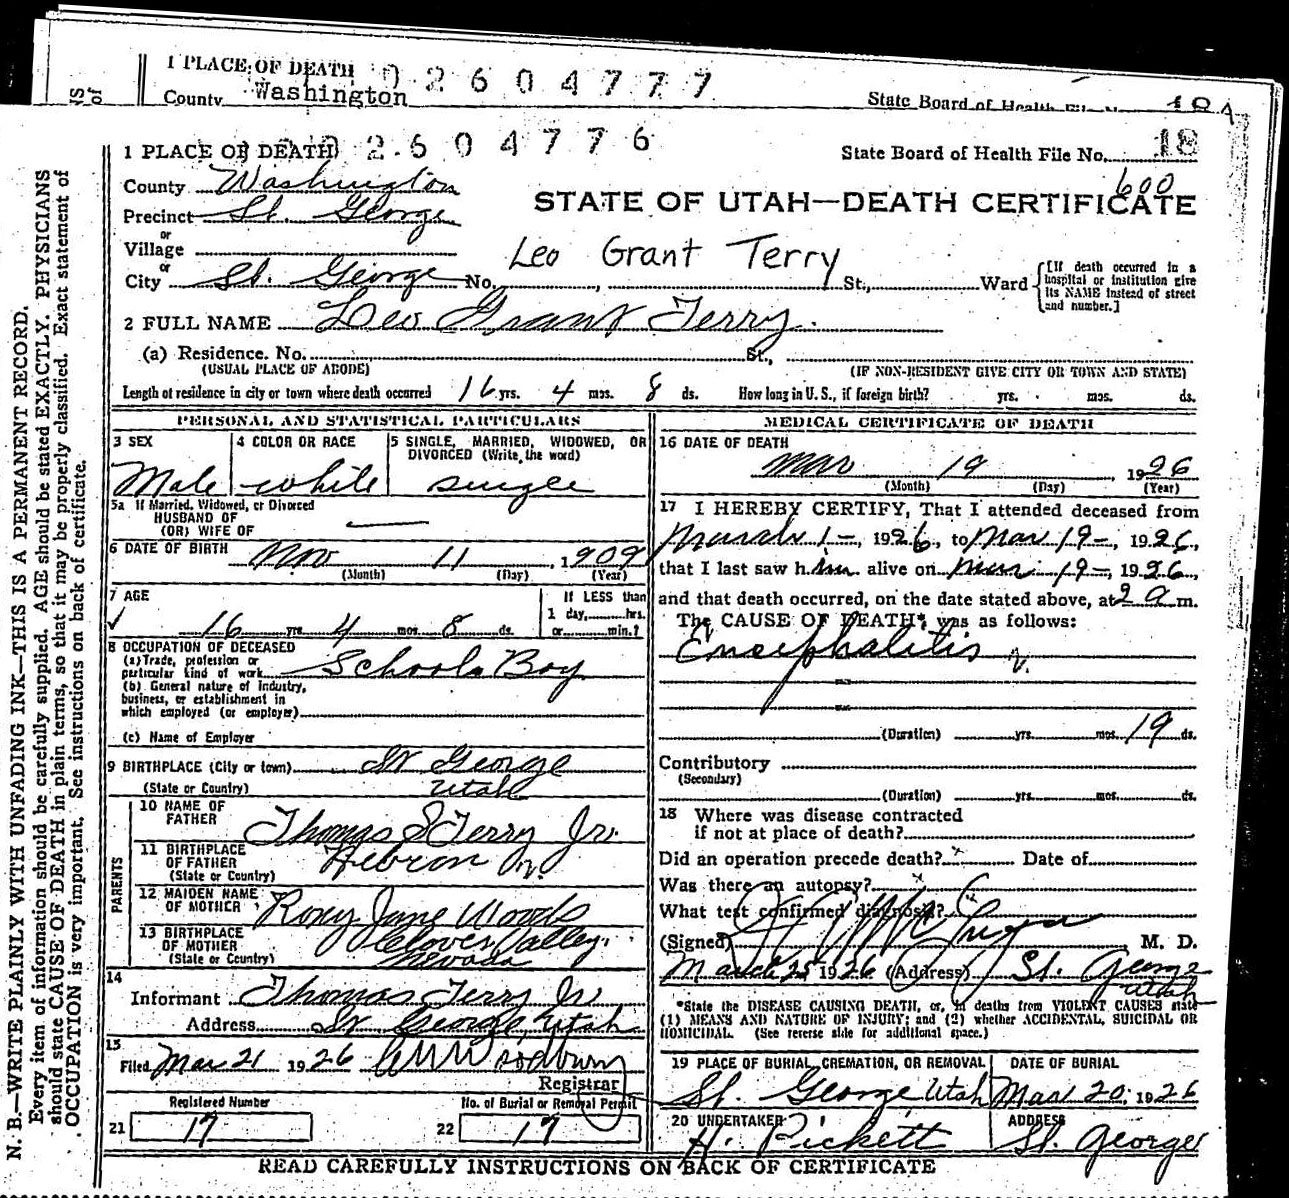 1 PLACE OF DEATH 0 2 6 0 4 7 7 7
County Washington State Board of Health File No. 18A
1 PLACE OF DEATH 0 2 6 0 4 7 7 6
State Board of Health File No. 18
600
County Washington
STATE OF UTAH—DEATH CERTIFICATE
Precinct St. George
or
Village
Leo Grant Terry
or
City St. George No. , St., Ward
[If death occurred in a hospital or institution give its NAME instead of street and number.]
2 FULL NAME Leo Grant Terry.
(a) Residence. No. St.,
(USUAL PLACE OF ABODE) (IF NON-RESIDENT GIVE CITY OR TOWN AND STATE)
Length of residence in city or town where death occurred 16 yrs. 4 mos. 8 ds. How long in U. S., if foreign birth? yrs. mos. ds.
PERSONAL AND STATISTICAL PARTICULARS
3 SEX
Male
4 COLOR OR RACE
white
5 SINGLE, MARRIED, WIDOWED, OR DIVORCED (Write the word)
single
5a If Married, Widowed, or Divorced
HUSBAND OF
(OR) WIFE OF —
6 DATE OF BIRTH Nov 11 1909
(Month) (Day) (Year)
7 AGE
If LESS than
1 day, hrs.
or min.?
✓ 16 yrs. 4 mos. 8 ds.
8 OCCUPATION OF DECEASED
(a) Trade, profession or
particular kind of work School Boy
(b) General nature of industry,
business, or establishment in
which employed (or employer)
(c) Name of Employer
9 BIRTHPLACE (City or town) St George
(State or Country) Utah
PARENTS
10 NAME OF
FATHER Thomas S Terry Jr.
11 BIRTHPLACE
OF FATHER Hebron
(State or Country)
12 MAIDEN NAME
OF MOTHER Roxy Jane Woods
13 BIRTHPLACE
OF MOTHER Clover Valley,
(State or Country) Nevada
14
Informant Thomas Terry Jr
Address St George, Utah
15
Filed Mar 21 1926
Registrar
Registered Number No. of Burial or Removal Permit
21 17 22 17
MEDICAL CERTIFICATE OF DEATH
16 DATE OF DEATH
Mar 19 1926
(Month) (Day) (Year)
17 I HEREBY CERTIFY, That I attended deceased from
March 1—, 1926, to Mar 19—, 1926,
that I last saw him alive on Mar 19—, 1926,
and that death occurred, on the date stated above, at 2 a m.
The CAUSE OF DEATH* was as follows:
Encephalitis
(Duration) yrs. mos. 19 ds.
Contributory
(Secondary)
(Duration) yrs. mos. ds.
18 Where was disease contracted
if not at place of death?
Did an operation precede death? x Date of
Was there an autopsy? x
What test confirmed diagnosis?
(Signed) M. D.
March 25 1926 (Address) St. George
Utah
*State the DISEASE CAUSING DEATH, or, in deaths from VIOLENT CAUSES state
(1) MEANS AND NATURE OF INJURY; and (2) whether ACCIDENTAL, SUICIDAL OR
HOMICIDAL. (See reverse side for additional space.)
19 PLACE OF BURIAL, CREMATION, OR REMOVAL
St. George, Utah
DATE OF BURIAL
Mar 20, 1926
20 UNDERTAKER
H. Pickett
ADDRESS
St. George
READ CAREFULLY INSTRUCTIONS ON BACK OF CERTIFICATE
N. B.—WRITE PLAINLY WITH UNFADING INK—THIS IS A PERMANENT RECORD.
Every item of information should be carefully supplied. AGE should be stated EXACTLY. PHYSICIANS
should state CAUSE OF DEATH in plain terms, so that it may be properly classified. Exact statement of
OCCUPATION is very important. See instructions on back of certificate.